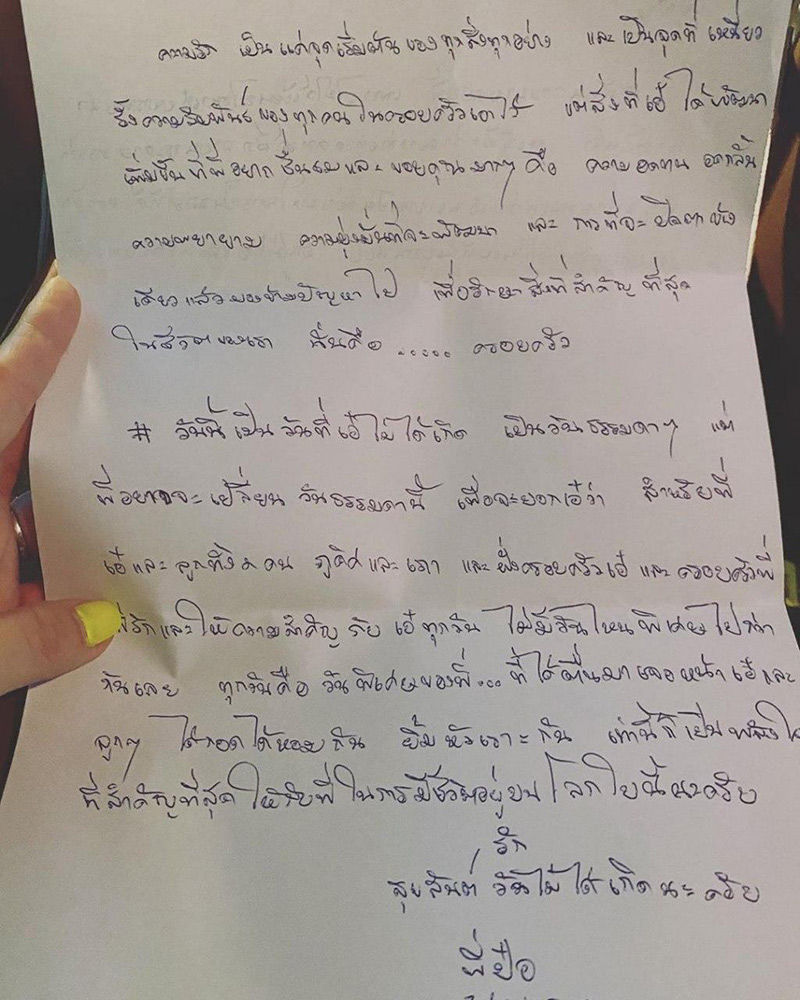 ความรัก เป็นแค่จุดเริ่มต้นของทุกสิ่งทุกอย่าง และเป็นจุดที่ เหนี่ยว
รั้งความสัมพันธ์ของทุกคนในครอบครัวเอาไว้ แต่สิ่งที่เอ๋ ได้พัฒนา
เพิ่มขึ้นที่พี่อยาก ชื่นชมและ ขอบคุณมากๆ คือ ความอดทน อดกลั้น
ความพยายาม ความมุ่งมั่นที่จะพัฒนา และ การที่จะปิดตาข้าง
เดียวแล้วมองข้ามปัญหาไป เพื่อรักษาสิ่งที่สำคัญที่สุด
ในชีวิตของเรา นั่นคือ ..... ครอบครัว
# วันนี้เป็นวันที่เอ๋ไม่ได้เกิด เป็นวันธรรมดาๆ แต่
พี่อยากจะเปลี่ยน วันธรรมดานี้ เพื่อจะบอกเอ๋ว่า สำหรับพี่
เอ๋และลูกทั้ง ๓ คน และ และฝั่งครอบครัวเอ๋ และครอบครัวพี่
พี่รักและให้ความสำคัญ กับ เอ๋ทุกวัน ไม่มีวันไหนพิเศษไปกว่า
กันเลย ทุกวันคือ วันพิเศษของพี่... ที่ได้ตื่นมาเจอหน้าเอ๋และ
ลูกๆ ได้กอดได้หอมกัน ยิ้มหัวเราะกัน เท่านี้ก็เป็นพลังใจ
ที่สำคัญที่สุด ให้กับพี่ในการมีชีวิตอยู่บนโลกใบนี้นะครับ
รัก
สุขสันต์ วันไม่ได้เกิดนะครับ
พี่ป๋อ